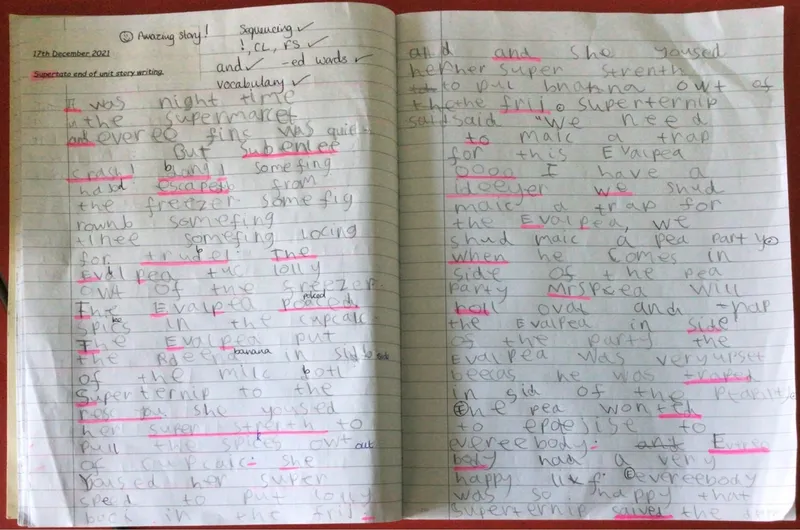 ☺ Amazing story!
Sequencing ✓
!, CL, FS ✓
and ✓ -ed words ✓
vocabulary ✓
17th December 2021
Supertato end of unit story writing.
It was night time
the supermarcet
and evereo fing was quiet
But subenlee
crash bang! somefing
had escaped from
the freezer. some fig
rounb somefing
somefing locing
for truble. The
Evalpea tuc lolly
owt of the freezer.
The Evalpea placed
spics in the cupcake
The Evalpea put
the banana in side
of the milc botl
Superternip to the
she yoused
her super strenth to
pull the spices owt out
of cupcake. she
yoused her super
speed to put lolly
back in the frij.
and and she yoused
her super strenth
to pul bnanna owt of
the frij. superternip
said "We need
to maic a trap
for this Evalpea
oooo I have a
ideeyer we shud
maic a trap for
the Evalpea, we
shud maic a pea party
when he comes in
side of the pea
party Mrs pea will
roll oval and
the Evalpea in side
of the party the
Evalpea was very
he was traped
in sid of the
The pea wonted
to to
evereebody.
body had a very
happy evereebody
was so happy that
superternip saived the